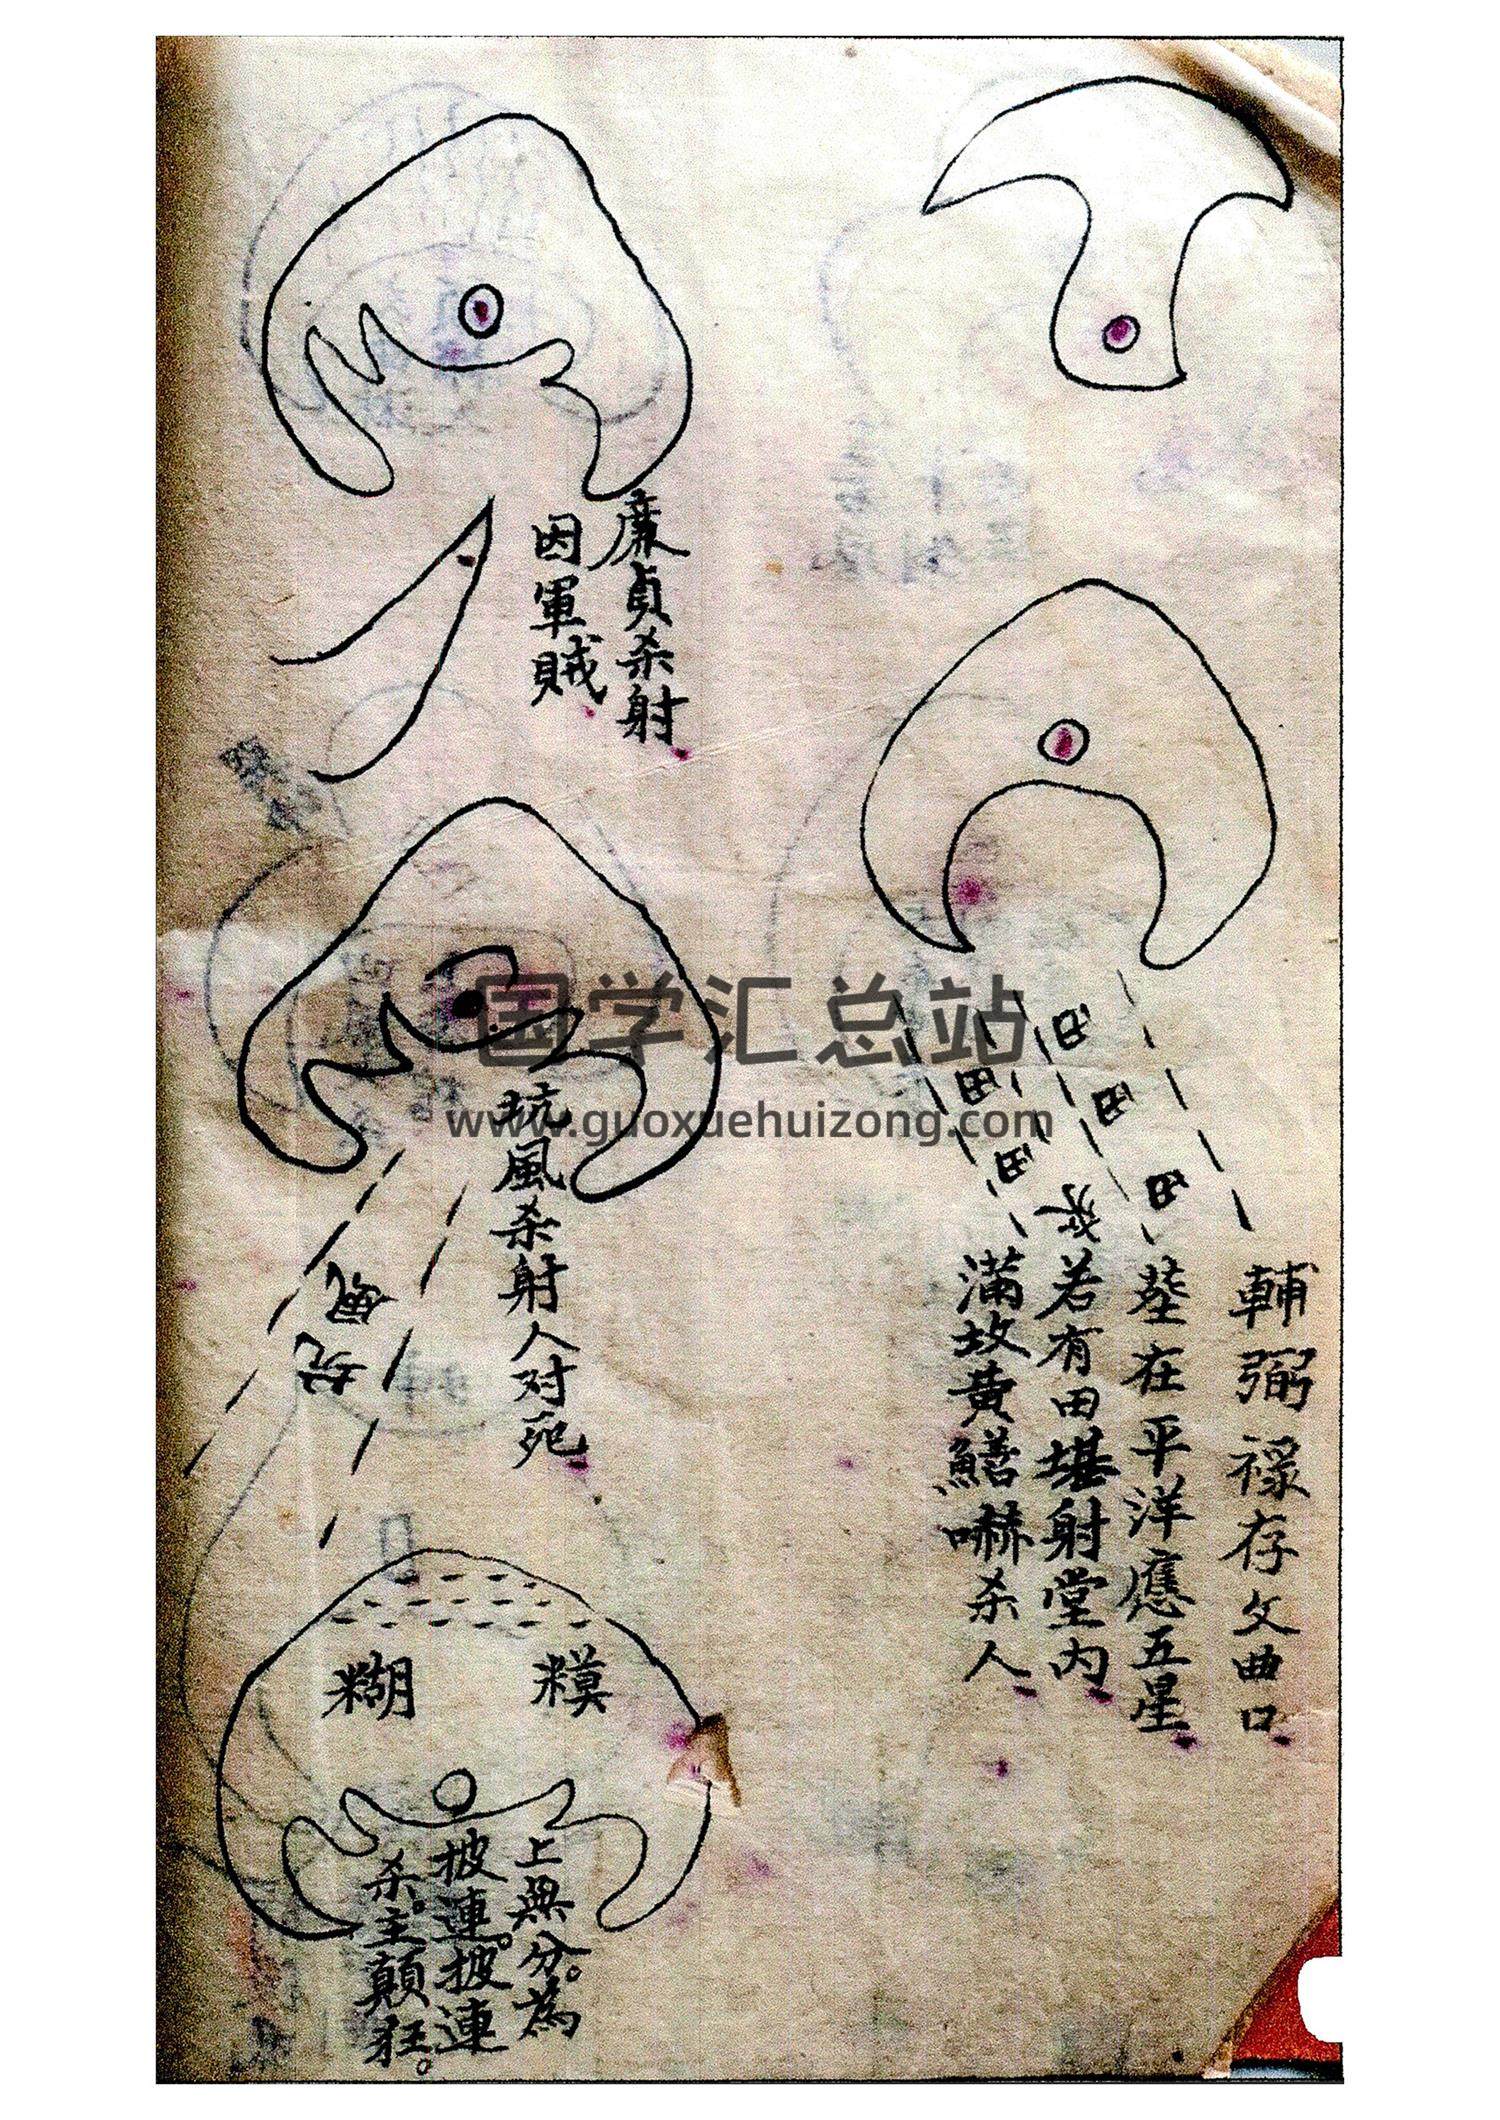 輔弼祿存文曲口
塋在平洋應五星
若有田堪射堂內
滿故黄鱔嚇杀人
田
田
田
田
田
水
廉貞杀射
因軍賊
坑風杀射人对死
坑
糊 糢
上無分。為
披連。披連
杀。主顛狂。
国学汇总站
www.guoxuehuizong.com